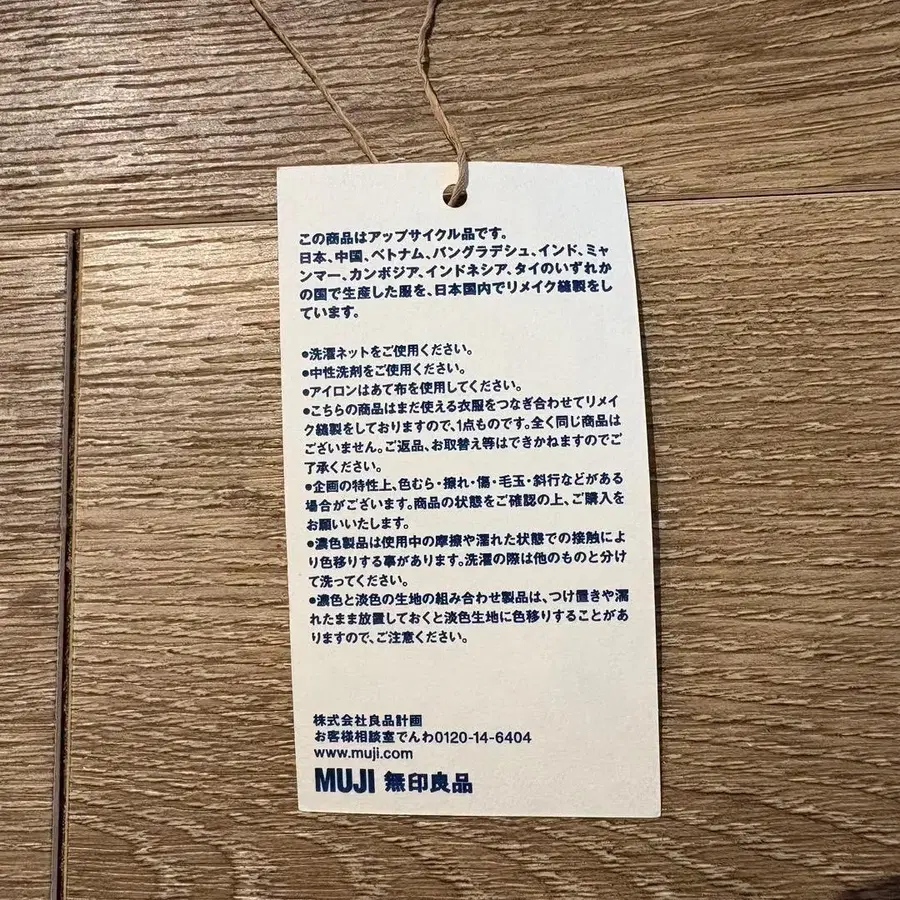 この商品はアップサイクル品です。
日本、中国、ベトナム、バングラデシュ、インド、ミャ
ンマー、カンボジア、インドネシア、タイのいずれか
の国で生産した服を、日本国内でリメイク縫製をし
ています。
●洗濯ネットをご使用ください。
●中性洗剤をご使用ください。
●アイロンはあて布を使用してください。
●こちらの商品はまだ使える衣服をつなぎ合わせてリメイ
ク縫製をしておりますので、1点ものです。全く同じ商品は
ございません。ご返品、お取替え等はできかねますのでご
了承ください。
●企画の特性上、色むら・擦れ・傷・毛玉・斜行などがある
場合がございます。商品の状態をご確認の上、ご購入を
お願いいたします。
●濃色製品は使用中の摩擦や濡れた状態での接触によ
り色移りする事があります。洗濯の際は他のものと分け
て洗ってください。
●濃色と淡色の生地の組み合わせ製品は、つけ置きや濡
れたまま放置しておくと淡色生地に色移りすることがあ
りますので、ご注意ください。
株式会社良品計画
お客様相談室でんわ0120-14-6404
www.muji.com
MUJI 無印良品